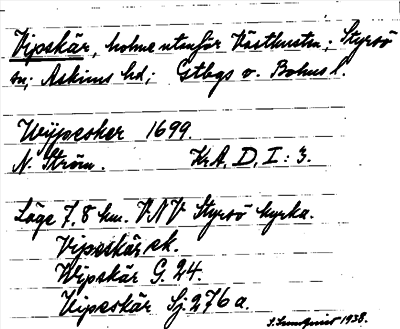 Vipskär, holme utanför Västkusten; Styrsö
sn; Askims hd; Gtbgs o. Bohus l.
Wijpesker 1699.
N. Ström. Kr.A. D. I: 3.
Läge 7,8 km. VNV Styrsö kyrka.
Vipeskär ek.
Wipskär G. 24.
Vipeskär Sj. 276 a.
S. Lundquist 1938.